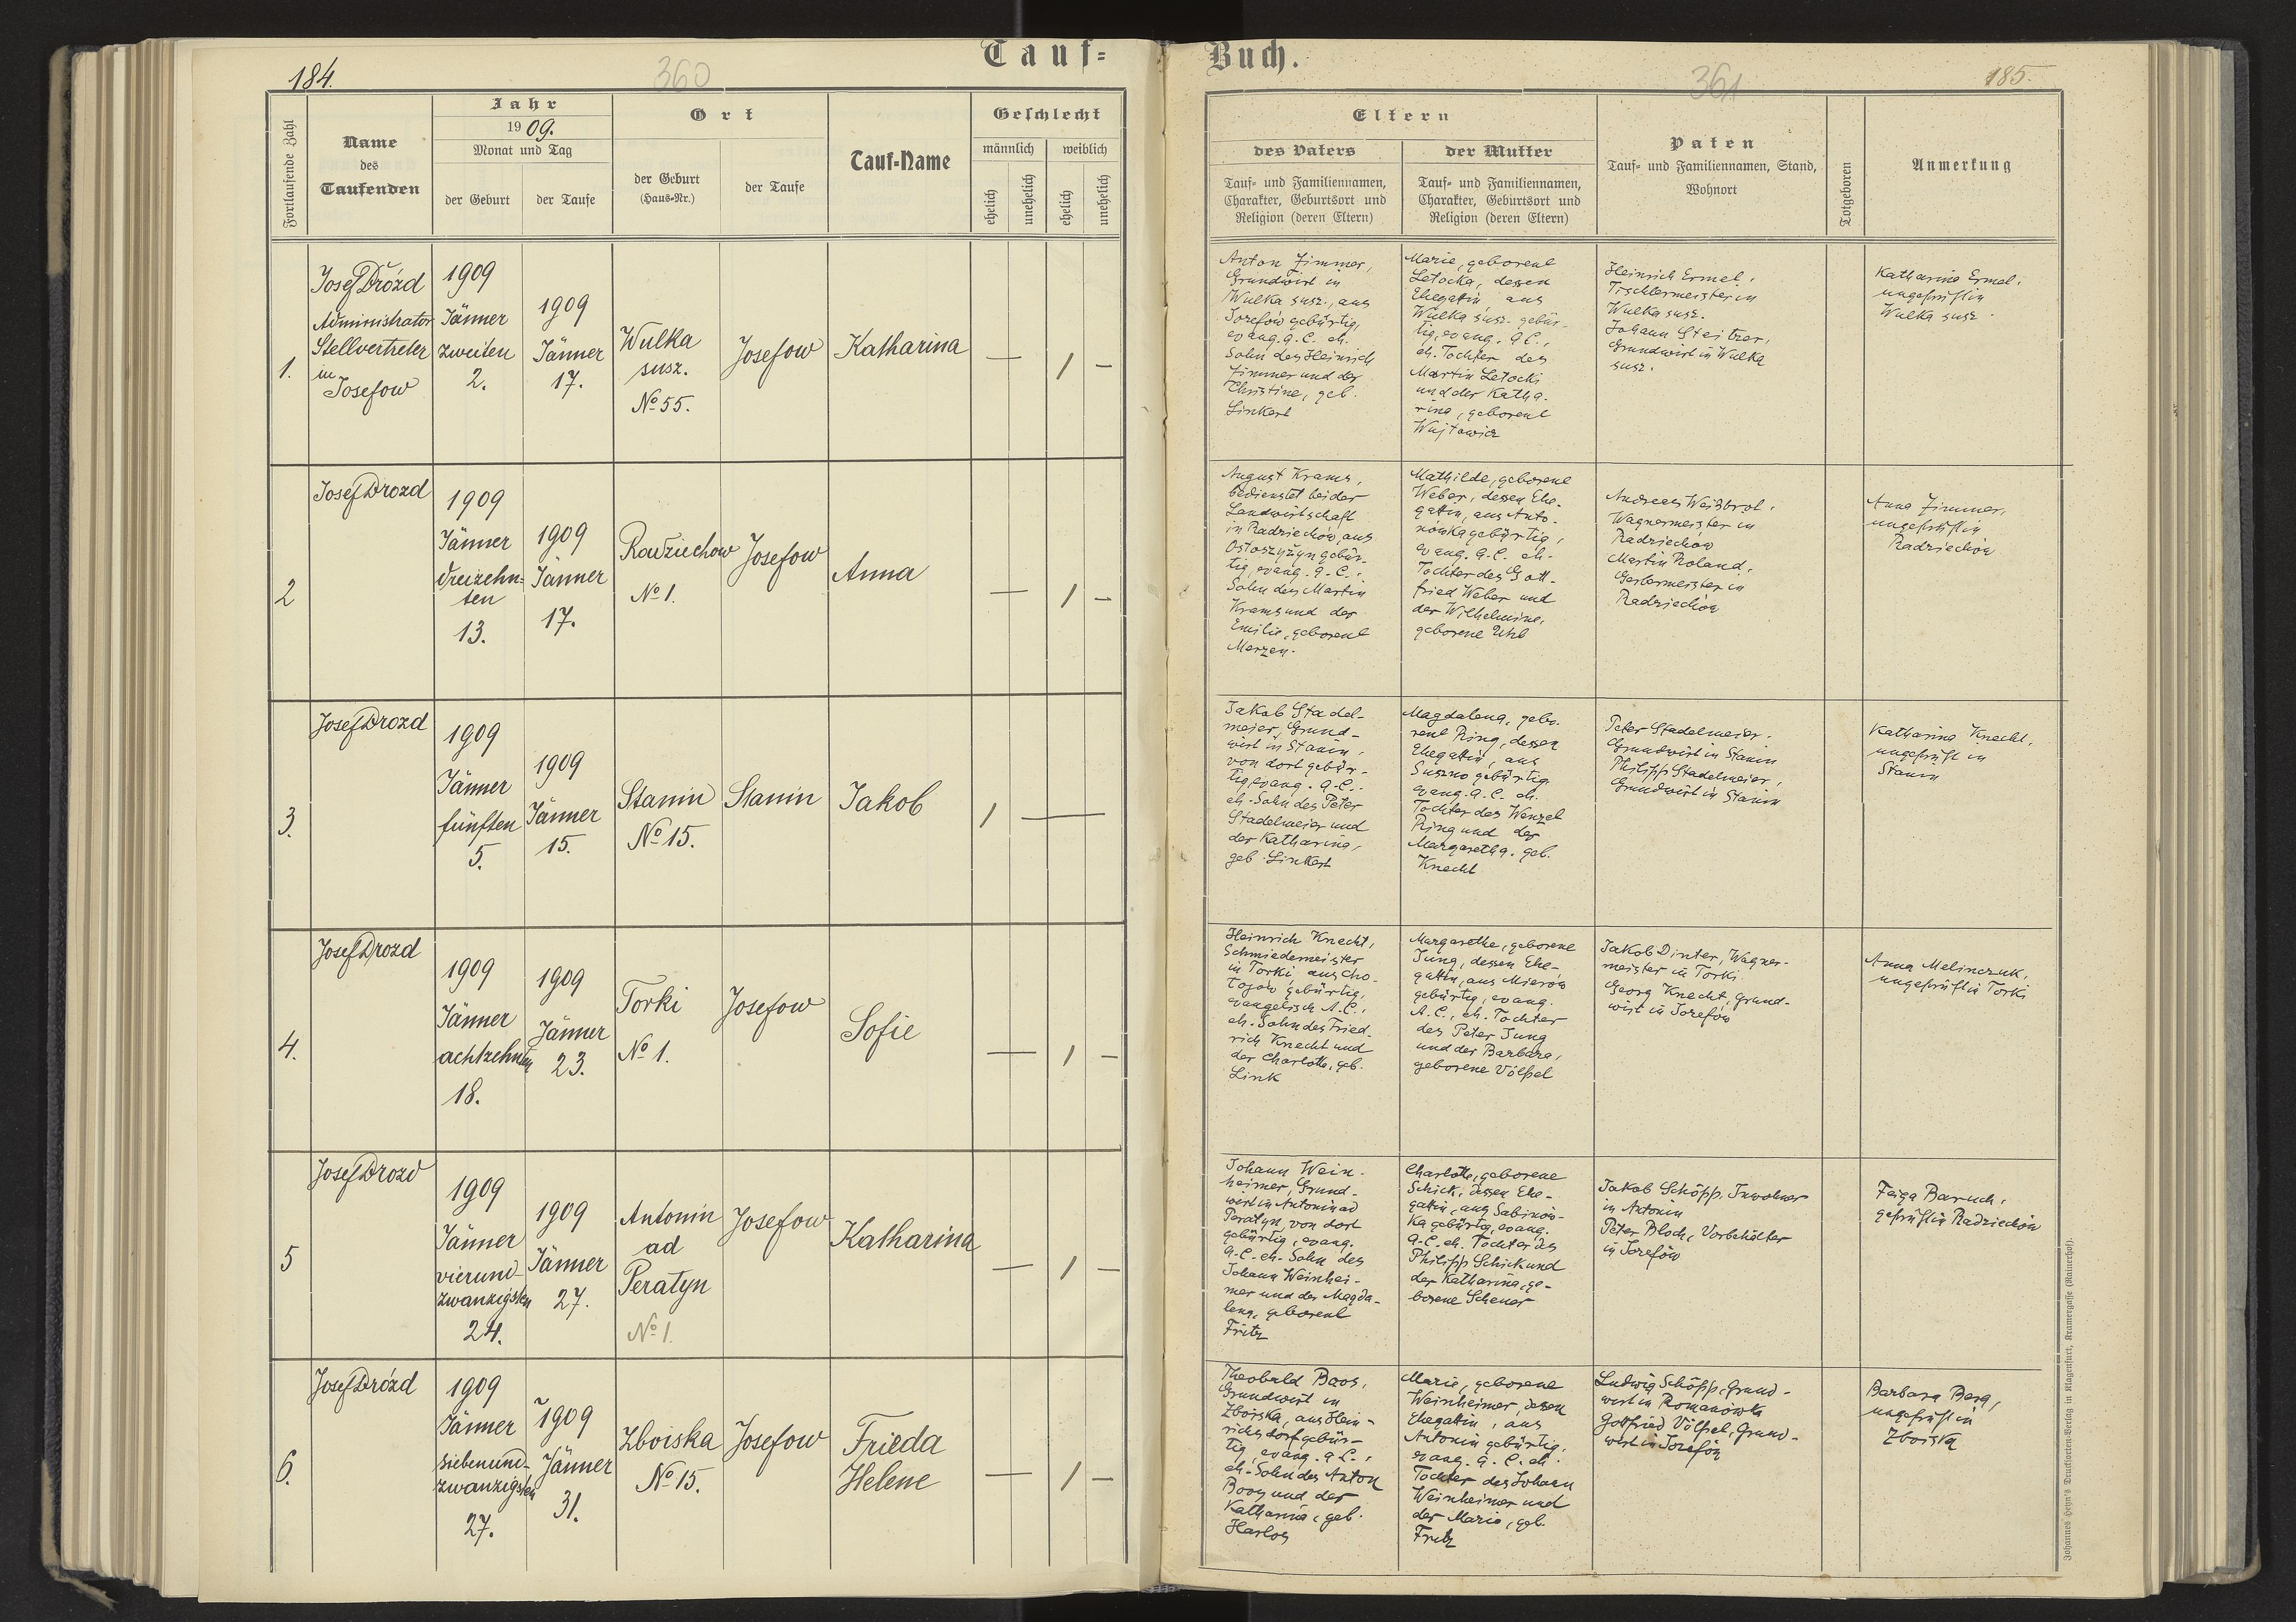 184.
360
Tauf=
Fortlaufende Zahl
Name
des
Taufenden
Jahr
1909.
Monat und Tag
der Geburt
der Taufe
Ort
der Geburt
(Haus=Nr.)
der Taufe
Tauf=Name
Geschlecht
männlich
weiblich
ehelich
unehelich
ehelich
unehelich
1.
Josef Drózd
Administrator
Stellvertreter
in
Josefow
1909
Jänner
zweiten
2.
1909
Jänner
17.
Wulka
susz.
No 55.
Josefow
Katharina
—
1
—
2
Josef Drozd
1909
Jänner
dreizehn=
ten
13.
1909
Jänner
17.
Radziechow
No 1.
Josefow
Anna
—
1
—
3.
Josef Drozd
1909
Jänner
fünften
5.
1909
Jänner
15.
Stanin
No 15.
Stanin
Jakob
1
—
4.
Josef Drozd
1909
Jänner
achtzehnten
18.
1909
Jänner
23.
Torki
No 1.
Josefow
Sofie
—
1
—
5
Josef Drozd
1909
Jänner
vierund-
zwanzigsten
24.
1909
Jänner
27.
Antonin
ad
Peratyn
No 1.
Josefow
Katharina
—
1
—
6.
Josef Drózd
1909
Jänner
siebenund-
zwanzigsten
27.
1909
Jänner
31.
Zboiska
No 15.
Josefow
Frieda
Helene
—
1
—
Buch.
361
185.
Eltern
des Vaters
Tauf= und Familiennamen,
Charakter, Geburtsort und
Religion (deren Eltern)
der Mutter
Tauf= und Familiennamen,
Charakter, Geburtsort und
Religion (deren Eltern)
Paten
Tauf= und Familiennamen, Stand,
Wohnort
Totgeboren
Anmerkung
Anton Zimmer,
Grundwirt in
Wulka susz., aus
Josefów gebürtig,
evang. A. C. eh.
Sohn des Heinrich
Zimmer und der
Christine, geb.
Linkert
Marie, geborene
Letocka, dessen
Ehegattin, aus
Wulka susz. gebür-
tig, evang. A C.,
eh. Tochter des
Martin Letocki
und der Katha-
rina, geborene
Wujtowicz
Heinrich Ermel,
Tischlermeister in
Wulka susz.
Johann Steitzer,
Grundwirt in Wulka
susz.
Katharina Ermel,
ungeprüft in
Wulka susz.
August Krams,
bedienstet bei der
Landwirtschaft
in Radziechów, aus
Ostoszyżyn gebür-
tig, evang. A. C.,
Sohn des Martin
Krams und der
Emilie, geborene
Merzen.
Mathilde, geborene
Weber, dessen Ehe-
gattin, aus Anto-
nówka gebürtig,
evang. A. C. eh.
Tochter des Gott-
fried Weber und
der Wilhelmine,
geborene Uhl
Andreas Weißbrot,
Wagnermeister in
Radziechów
Martin Roland,
Gerbermeister in
Radziechów
Anna Zimmer,
ungeprüft in
Radziechów
Jakob Stadel-
meier, Grund-
wirt in Stanin,
von dort gebür-
tig, evang. A. C.,
eh. Sohn des Peter
Stadelmeier und
der Katharina,
geb. Linkert
Magdalena, gebo-
rene Ring, dessen
Ehegattin, aus
Suszno gebürtig
evang. A. C. eh.
Tochter des Wenzel
Ring und der
Margaretha, geb.
Knecht
Peter Stadelmeier,
Grundwirt in Stanin
Philipp Stadelmeier,
Grundwirt in Stanin
Katharina Knecht,
ungeprüft in
Stanin
Heinrich Knecht,
Schmiedemeister
in Torki, aus Cho-
tojów gebürtig,
evangelisch A. C.,
eh. Sohn des Fried-
rich Knecht und
der Charlotte, geb.
Link
Margarethe, geborene
Jung, dessen Ehe-
gattin, aus Mierów
gebürtig, evang.
A. C., eh. Tochter
des Peter Jung
und der Barbara,
geborene Völpel
Jakob Dinter, Wagner-
meister in Torki
Georg Knecht, Grund-
wirt in Josefów
Anna Melinczuk,
ungeprüft in Torki
Johann Wein-
heimer, Grund-
wirt in Antonin ad
Peratyn, von dort
gebürtig, evang.
A. C. eh. Sohn des
Johann Weinhei-
mer und der Magda-
lena, geborene
Fritz
Charlotte, geborene
Schick, dessen Ehe-
gattin, aus Sabinów-
ka gebürtig, evang.
A. C. eh. Tochter des
Philipp Schick und
der Katharina, ge-
borene Scheuer
Jakob Schöpp, Inwohner
in Antonin
Peter Bloch, Vorbehälter
in Josefów
Feiga Baruch,
geprüft in Radziechów
Theobald Boos,
Grundwirt in
Zboiska, aus Hein-
richsdorf gebür-
tig, evang. A C.,
eh. Sohn des Anton
Boos und der
Katharina, geb.
Harlos
Marie, geborene
Weinheimer, dessen
Ehegattin, aus
Antonin gebürtig,
evang. A. C. eh.
Tochter des Johann
Weinheimer und
der Marie, geb.
Fritz
Ludwig Schöpp, Grund-
wirt in Romanówka
Gottfried Völpel, Grund-
wirt in Josefów
Barbara Berg,
ungeprüft in
Zboiska
Johannes Heyn's Drucksorten=Verlag in Klagenfurt, Kramergasse (Rainerhof).